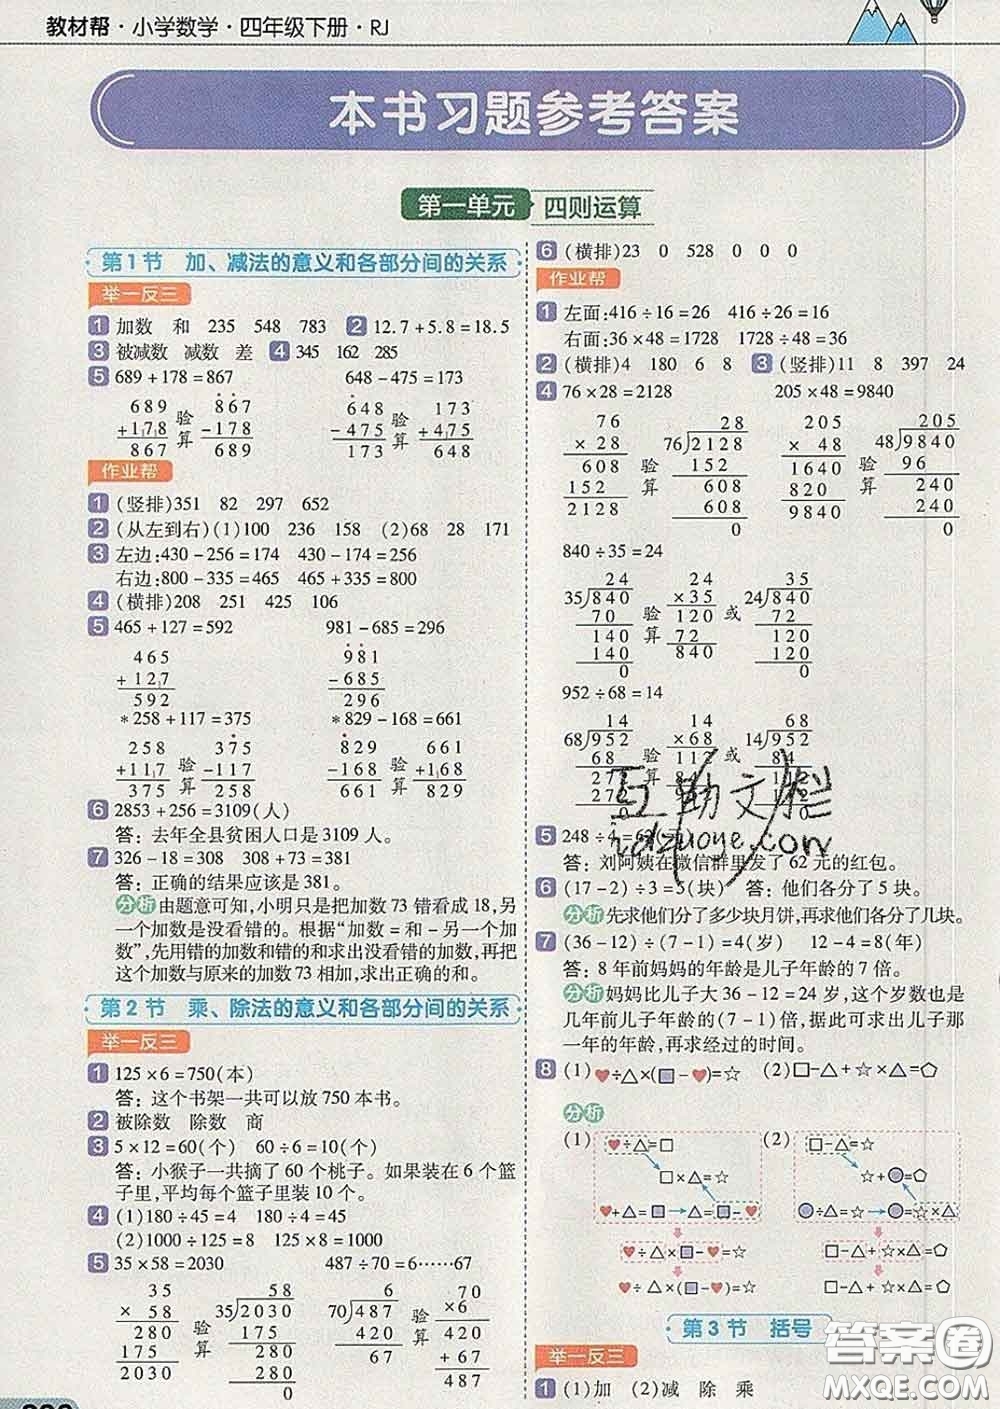 教材帮·小学数学·四年级下册·RJ
本书习题参考答案
第一单元 四则运算
第1节 加、减法的意义和各部分间的关系
举一反三
1 加数 和 235 548 783 2 12.7+5.8=18.5
3 被减数 减数 差 4 345 162 285
5 689+178=867 648-475=173
689 验 867 648 验 173
+178 算 -178 -475 算 +475
867 689 173 648
作业帮
1 (竖排)351 82 297 652
2 (从左到右)(1)100 236 158 (2)68 28 171
3 左边:430-256=174 430-174=256
右边:800-335=465 465+335=800
4 (横排)208 251 425 106
5 465+127=592 981-685=296
465 981
+127 -685
592 296
*258+117=375 *829-168=661
258 验 375 829 验 661
+117 算 -117 -168 算 +168
375 258 661 829
6 2853+256=3109(人)
答:去年全县贫困人口是3109人。
7 326-18=308 308+73=381
答:正确的结果应该是381。
分析 由题意可知,小明只是把加数73错看成18,另
一个加数是没看错的。根据“加数=和-另一个加
数”,先用错的加数和错的和求出没看错的加数,再把
这个加数与原来的加数73相加,求出正确的和。
第2节 乘、除法的意义和各部分间的关系
举一反三
1 125×6=750(本)
答:这个书架一共可以放750本书。
2 被除数 除数 商
3 5×12=60(个) 60÷6=10(个)
答:小猴子一共摘了60个桃子。如果装在6个篮
子里,平均每个篮子里装10个。
4 (1)180÷45=4 180÷4=45
(2)1000÷125=8 125×8=1000
5 35×58=2030 487÷70=6……67
35 58 6 70
× 58 验 35)2030 70)487 验 ×6
280 算 175 420 算 420
175 280 67 + 67
2030 280 487
0
6 (横排)23 0 528 0 0 0
作业帮
1 左面:416÷16=26 416÷26=16
右面:36×48=1728 1728÷48=36
2 (横排)4 180 6 8 3 (竖排)11 8 397 24
4 76×28=2128 205×48=9840
76 28 205 205
× 28 76)2128 × 48 48)9840
608 验 152 1640 验 96
152 算 608 820 算 240
2128 608 9840 240
0 0
840÷35=24
24 24 35
35)840 验 ×35 或 24)840
70 算 120 72
140 72 120
140 840 120
0 0
952÷68=14
14 14 68
68)952 验 ×68 或 14)952
68 算 112 84
272 112
272
0
互助文档
hdzuoye.com
5 248÷4=62(元)
答:刘阿姨在微信群里发了62元的红包。
6 (17-2)÷3=5(块) 答:他们各分了5块。
分析 先求他们分了多少块月饼,再求他们各分了几块。
7 (36-12)÷(7-1)=4(岁) 12-4=8(年)
答:8年前妈妈的年龄是儿子年龄的7倍。
分析 妈妈比儿子大36-12=24岁,这个岁数也是
几年前儿子年龄的(7-1)倍,据此可求出儿子那
一年的年龄,再求经过的时间。
8 (1)♥÷△×(■-♥)=☆ (2)□-△+☆×△=⬠
分析
(1) ♥÷△=□ (2) □-△=☆
□×△=☆ ☆+●=⬠
♥+△=■→△=■-♥ ●÷△=☆→●=☆×△
♥÷△×■-♥=☆ □-△+☆×△=⬠
♥÷△×(■-♥)=☆ □-△+☆×△=⬠
第3节 括号
举一反三
1 (1)加 (2)减 除 乘
答案圈
MXQE.COM